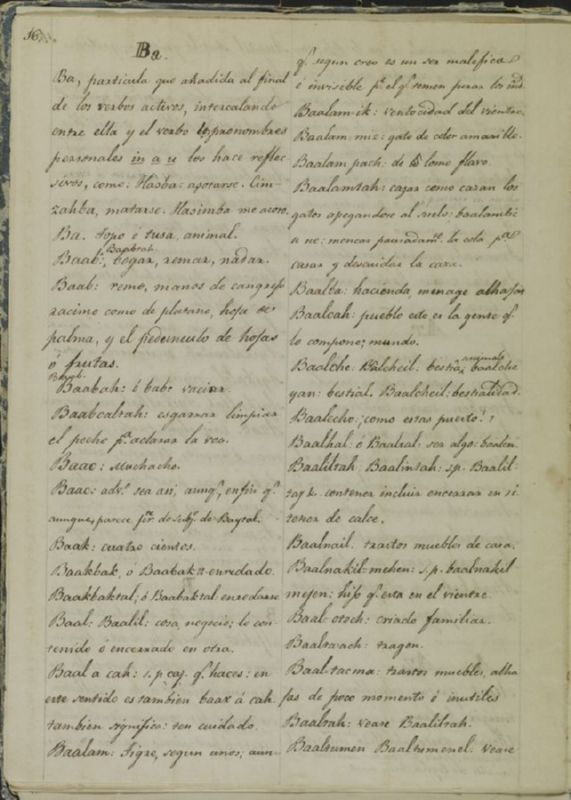 16.
Ba.
Ba, particula que añadida al final
de los verbos activos, intercalando
entre ella y el verbo los pronombres
personales in a u los hace reflec-
sivos, como. Hasba: azotarse. Cim-
zahba, matarse. Hasimba me azoto.
Ba. topo ó tusa, animal.
Baabtah.
Baab: bogar, remar, nadar.
Baab: remo, manos de cangrejo
racimo como de platano, hoja de
palma, y el pedunculo de hojas
ó frutas.
Baabah: ó babz vaciar.
Baabcaltah: esgarrar limpiar
el pecho pª aclarar la voz.
Baac: Muchacho.
Baac: advº sea asi, aunqe, enfin qe
aunque, parece
Baak: cuatro cientos.
Baakbak, ó Baabak enredado.
Baakbaktal; ó Baabaktal enredarse
Baal: Baalil: cosa, negocio; lo con-
tenido ó encerrado en otra.
Baal a cah: s.p caz. qe haces: en
este sentido es tambien baax á cah
tambien significa: ten cuidado.
Baalam: Tigre, segun unos; aun-
qe segun creo es un ser malefico
é invisible pr el qe temen pasar los inds
Baalam-ik: ventocidad del vientre.
Baalam mis: gato de color amarillo.
Baalam pach: de lomo flavo.
Baalamtah: cazar como cazan los
gatos apegandose al suelo: baalantic
u ne: menear pausadamte la cola pa
cazar y descuidar la caza.
Baalba: hacienda, menage alhajas
Baalcah: pueblo este es la gente qe
lo compone; mundo.
Baalche Balcheil. bestia, animal baalche
yan: bestial. Baalcheil: bestialidad.
Baalecho; ¿como estas puerto?
Baalhal: ó Baaltal: ser algo: baalen.
Baalitah, Baalintah: s.p. Baalil-
tay k. contener incluir encerrar en si
tener de calce.
Baalnail. trastos muebles de casa.
Baalnakil-mehen: s.p. baalnakil
mejen: hijo qe esta en el vientre
Baal-otoch: criado familiar.
Baalzach: tragon.
Baal-tacma: trastos muebles, alha
jas de poco momento ó inutiles
Baaltah: vease Baalitah.
Baaltumen Baaltumenel. Vease